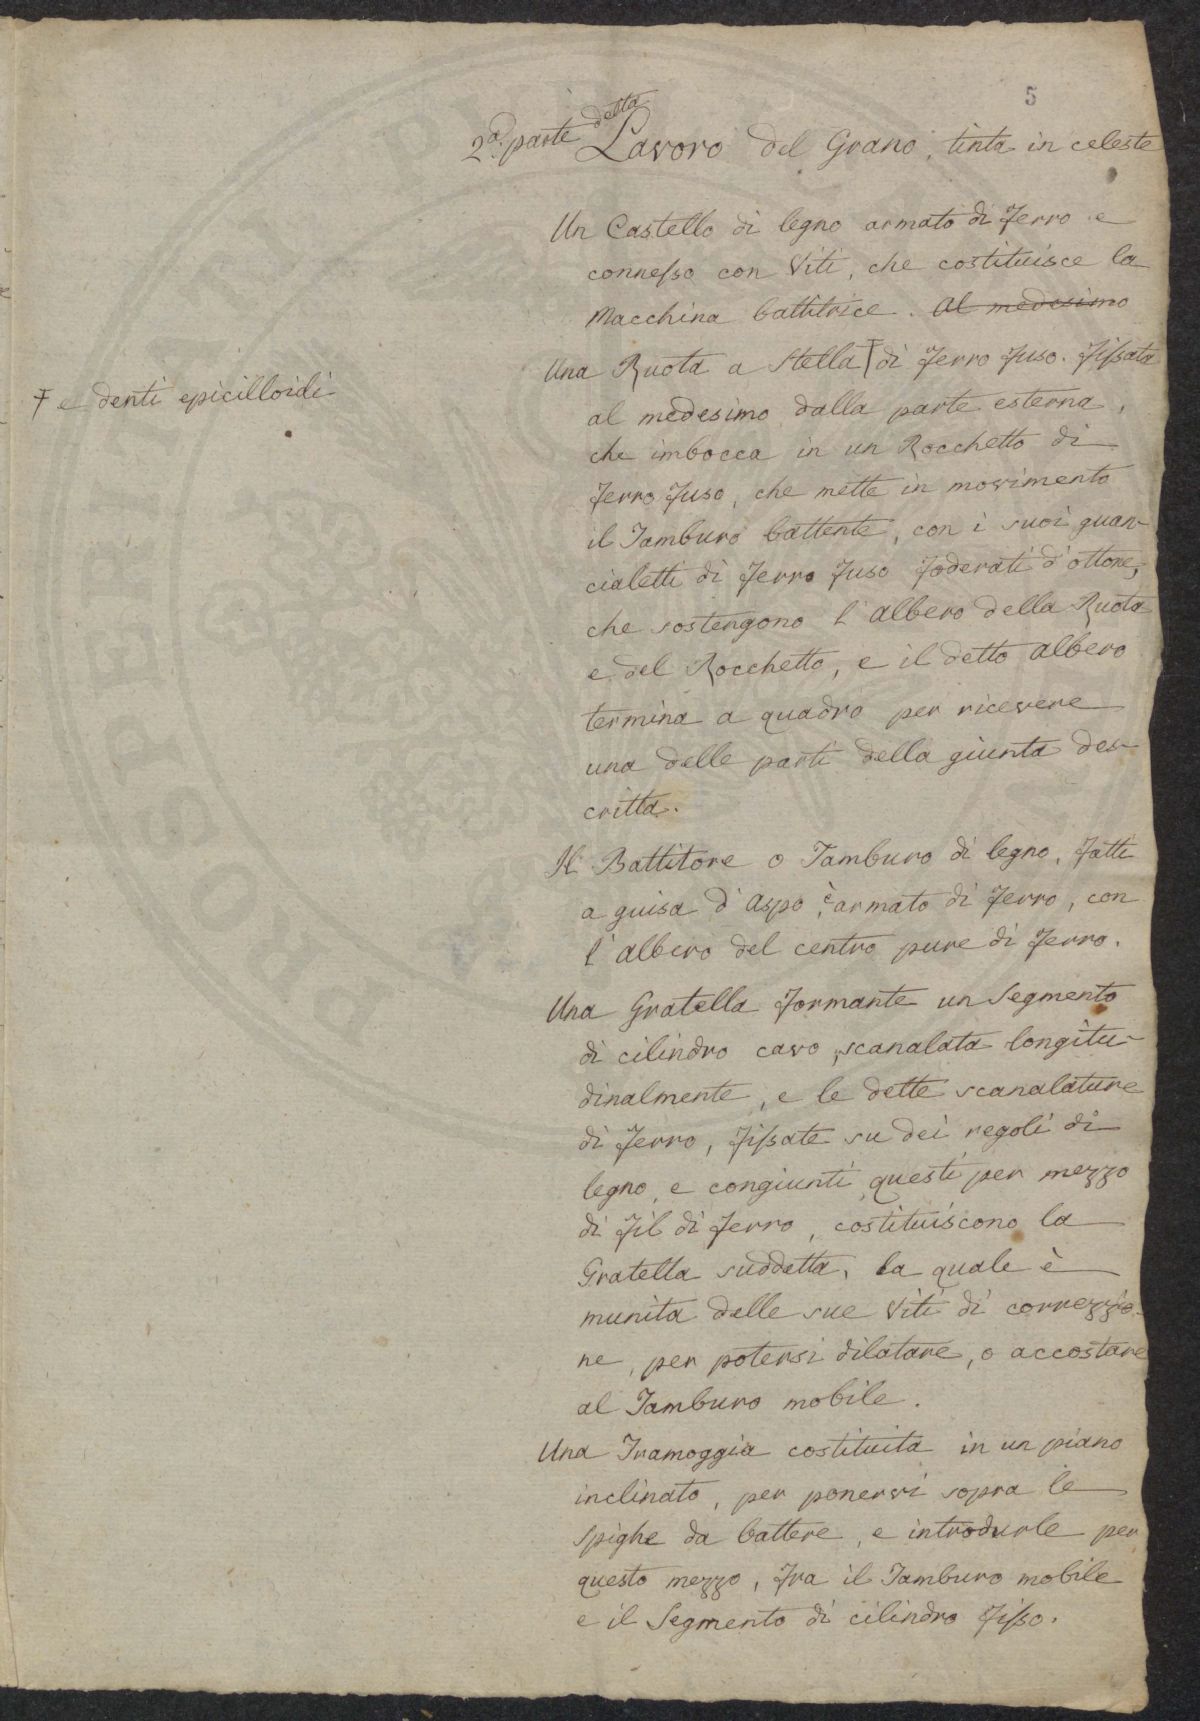 5
2.a parte detta Lavoro del Grano, tinta in celeste
Un Castello di legno armato di ferro e
connesso con Viti, che costituisce la
Macchina battitrice. Al medesimo
Una Ruota a Stella ‡ di ferro fuso. fissata
‡ e denti epicilloidi
al medesimo dalla parte esterna,
che imbocca in un Rocchetto di
ferro fuso, che mette in movimento
il Tamburo battente, con i suoi guan-
cialetti di ferro fuso foderati d'ottone,
che sostengono l'albero della Ruota
e del Rocchetto, e il detto albero
termina a quadro per ricevere
una delle parti della giunta des-
critta.
Il Battitore o Tamburo di legno, fatti
a guisa d'Aspo, è armato di ferro, con
l'albero del centro pure di ferro.
Una Gratella formante un Segmento
di cilindro cavo, scanalata longitu-
dinalmente, e le dette scanalature
di ferro, fissate su dei regoli di
legno, e congiunti questi per mezzo
di fil di ferro, costituiscono la
Gratella suddetta, la quale è
munita delle sue Viti di correzzio-
ne, per potersi dilatare, o accostare
al Tamburo mobile.
Una Tramoggia costituita in un piano
inclinato, per ponervi sopra le
spighe da battere, e introdurle per
questo mezzo, fra il Tamburo mobile
e il Segmento di cilindro fisso.